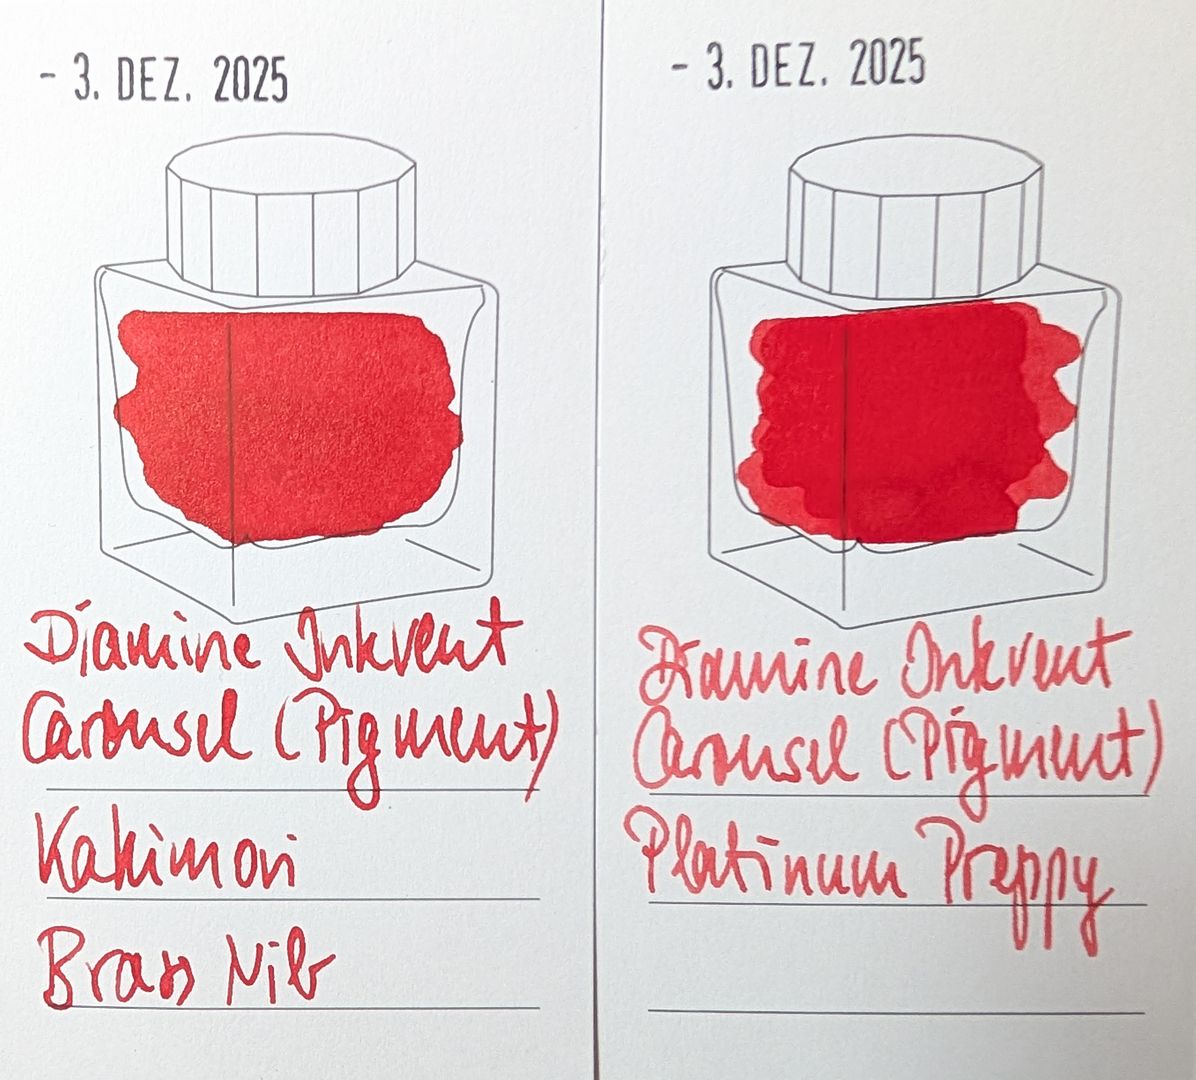 - 3. DEZ. 2025
Diamine Inkvent
Carousel (Pigment)
Kakimori
Brass Nib
- 3. DEZ. 2025
Diamine Inkvent
Carousel (Pigment)
Platinum Preppy